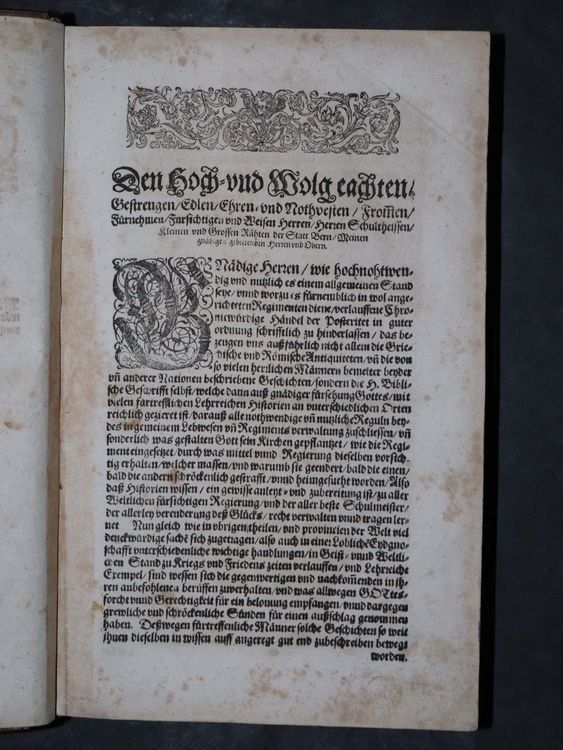 Den Hoch- vnd Wolg eachten/
Gestrengen/Edlen/Ehren- vnd Nothvesten/From̃en/
Fürnehmen/Fürsichtigen vnd Weisen Herren/Herren Schultheissen/
Kleinen vnd Grossen Rähten der Statt Bern/Meinen
gnädigen gebietenden Herren vnd Obern.
GNädige Herren/wie hochnohtwen-
dig vnd nutzlich es einem allgemeinen Stand
seye/vnnd worzu es fürnemblich in wol ange-
richteten Regimenten diene/verlauffene Chro-
nicwürdige Händel der Posteritet in guter
ordnung schrifftlich zu hinderlassen/das be-
zeugen vns außführlich nicht allein die Grie-
chische vnd Römische Antiquiteten/vñ die von
so vielen herzlichen Männern bemelter beyder
vñ anderer Nationen beschriebene Geschichten/sondern die H. Bibli-
sche Geschrifft selbst/welche dann auß gnädiger fürsehung Gottes/mit
vielen fürtrefflichen Lehrreichen Historien an vnterschiedlichen Orten
reichlich gezieret ist/darauß alle nothwendige vñ nutzliche Reguln bey-
des in gemeinem Lebwesen vñ Regiments verwaltung zuschliessen/vñ
sonderlich was gestalten Gott sein Kirchen gepflantzet/wie die Regi-
ment eingesetzet/durch was mittel vnnd Regierung dieselben vorsich-
tig erhalten/welcher massen/vnd warumb sie geendert/bald die einen/
bald die andern schröckenlich gestrafft/vnnd heimgesucht worden/Also
daß Historien wissen/ein gewisse anleyt- vnd zubereitung ist/zu aller
Weltlichen fürsichtigen Regierung/vnd der aller beste Schulmeister/
der allerley verenderung deß Glücks/recht verwalten vnnd tragen ler-
net Nun gleich wie in vbrigen theilen/vnd provincien der Welt viel
denckwürdige sachẽ sich zugetragen/also auch in einer Loblichẽ Eydgno-
schafft vnterschiedenliche wichtige handlungen/in Geist- vnnd Weltli-
chen Stand zu Kriegs vnd Friedens zeiten verlauffen/vnd Lehrreiche
Exempel/sind wessen sich die gegenwertigen vnd nachkom̃enden in ih-
ren anbefohlenen berüffen zuverhalten/vnd was allwegen GOttes-
forcht vnnd Gerechtigkeit für ein belonung empfangen/vnnd dargegen
grewliche vnd schröckenliche Sünden für einen außschlag genommen
haben. Deßwegen fürtreffenliche Männer solche Geschichten so weit
ihnen dieselben in wissen auff angeregt gut end zubeschreiben bewegt
worden.